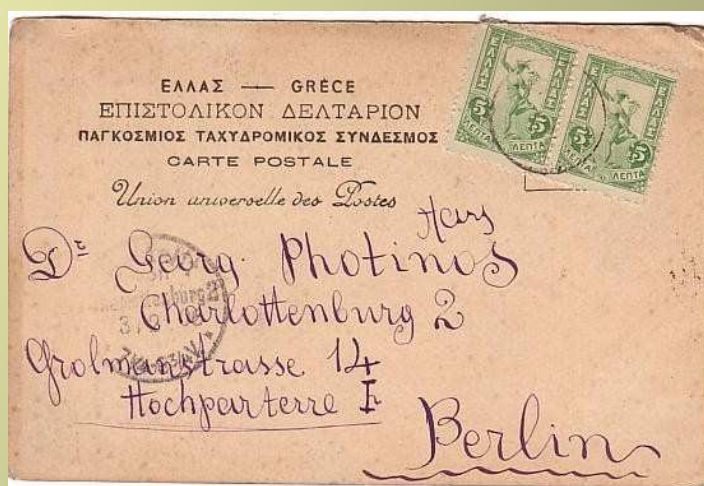 ΕΛΛΑΣ — GRÈCE
ΕΠΙΣΤΟΛΙΚΟΝ ΔΕΛΤΑΡΙΟΝ
ΠΑΓΚΟΣΜΙΟΣ ΤΑΧΥΔΡΟΜΙΚΟΣ ΣΥΝΔΕΣΜΟΣ
CARTE POSTALE
Union universelle des Postes
ΕΛΛΑΣ ΕΛΛΑΣ
5 ΛΕΠΤΑ 5
ΕΛΛΑΣ ΕΛΛΑΣ
5 ΛΕΠΤΑ ΛΕΠΤΑ 5
Herrn
Dr Georg Photinos
Charlottenburg 2
Grolmanstrasse 14
Hochparterre I
Berlin